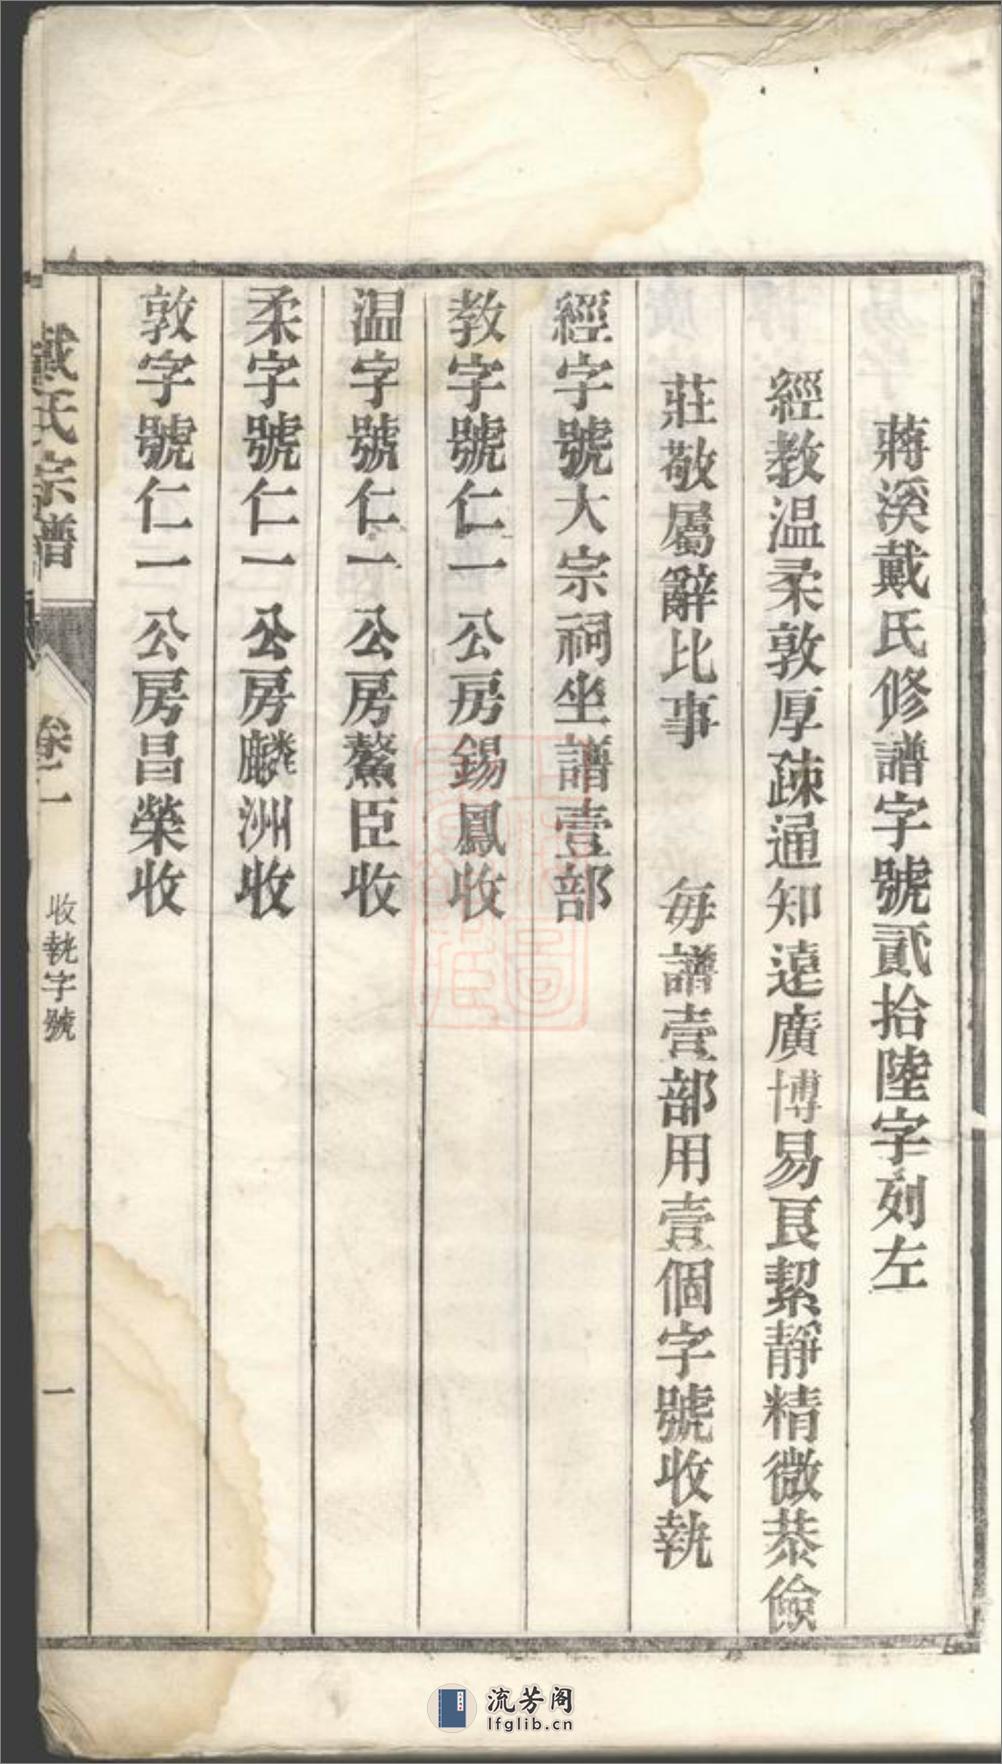 蔣溪戴氏修譜字號貳拾陸字列左
經教温柔敦厚疎通知遠廣博易良絜靜精微恭儉
莊敬屬辭比事　每譜壹部用壹個字號收執
經字號大宗祠坐譜壹部
教字號仁一公房錫鳳收
温字號仁一公房鰲臣收
柔字號仁一公房麟洲收
敦字號仁一公房昌榮收
戴氏宗譜
收執字號
一
流芳阁
lfglib.cn